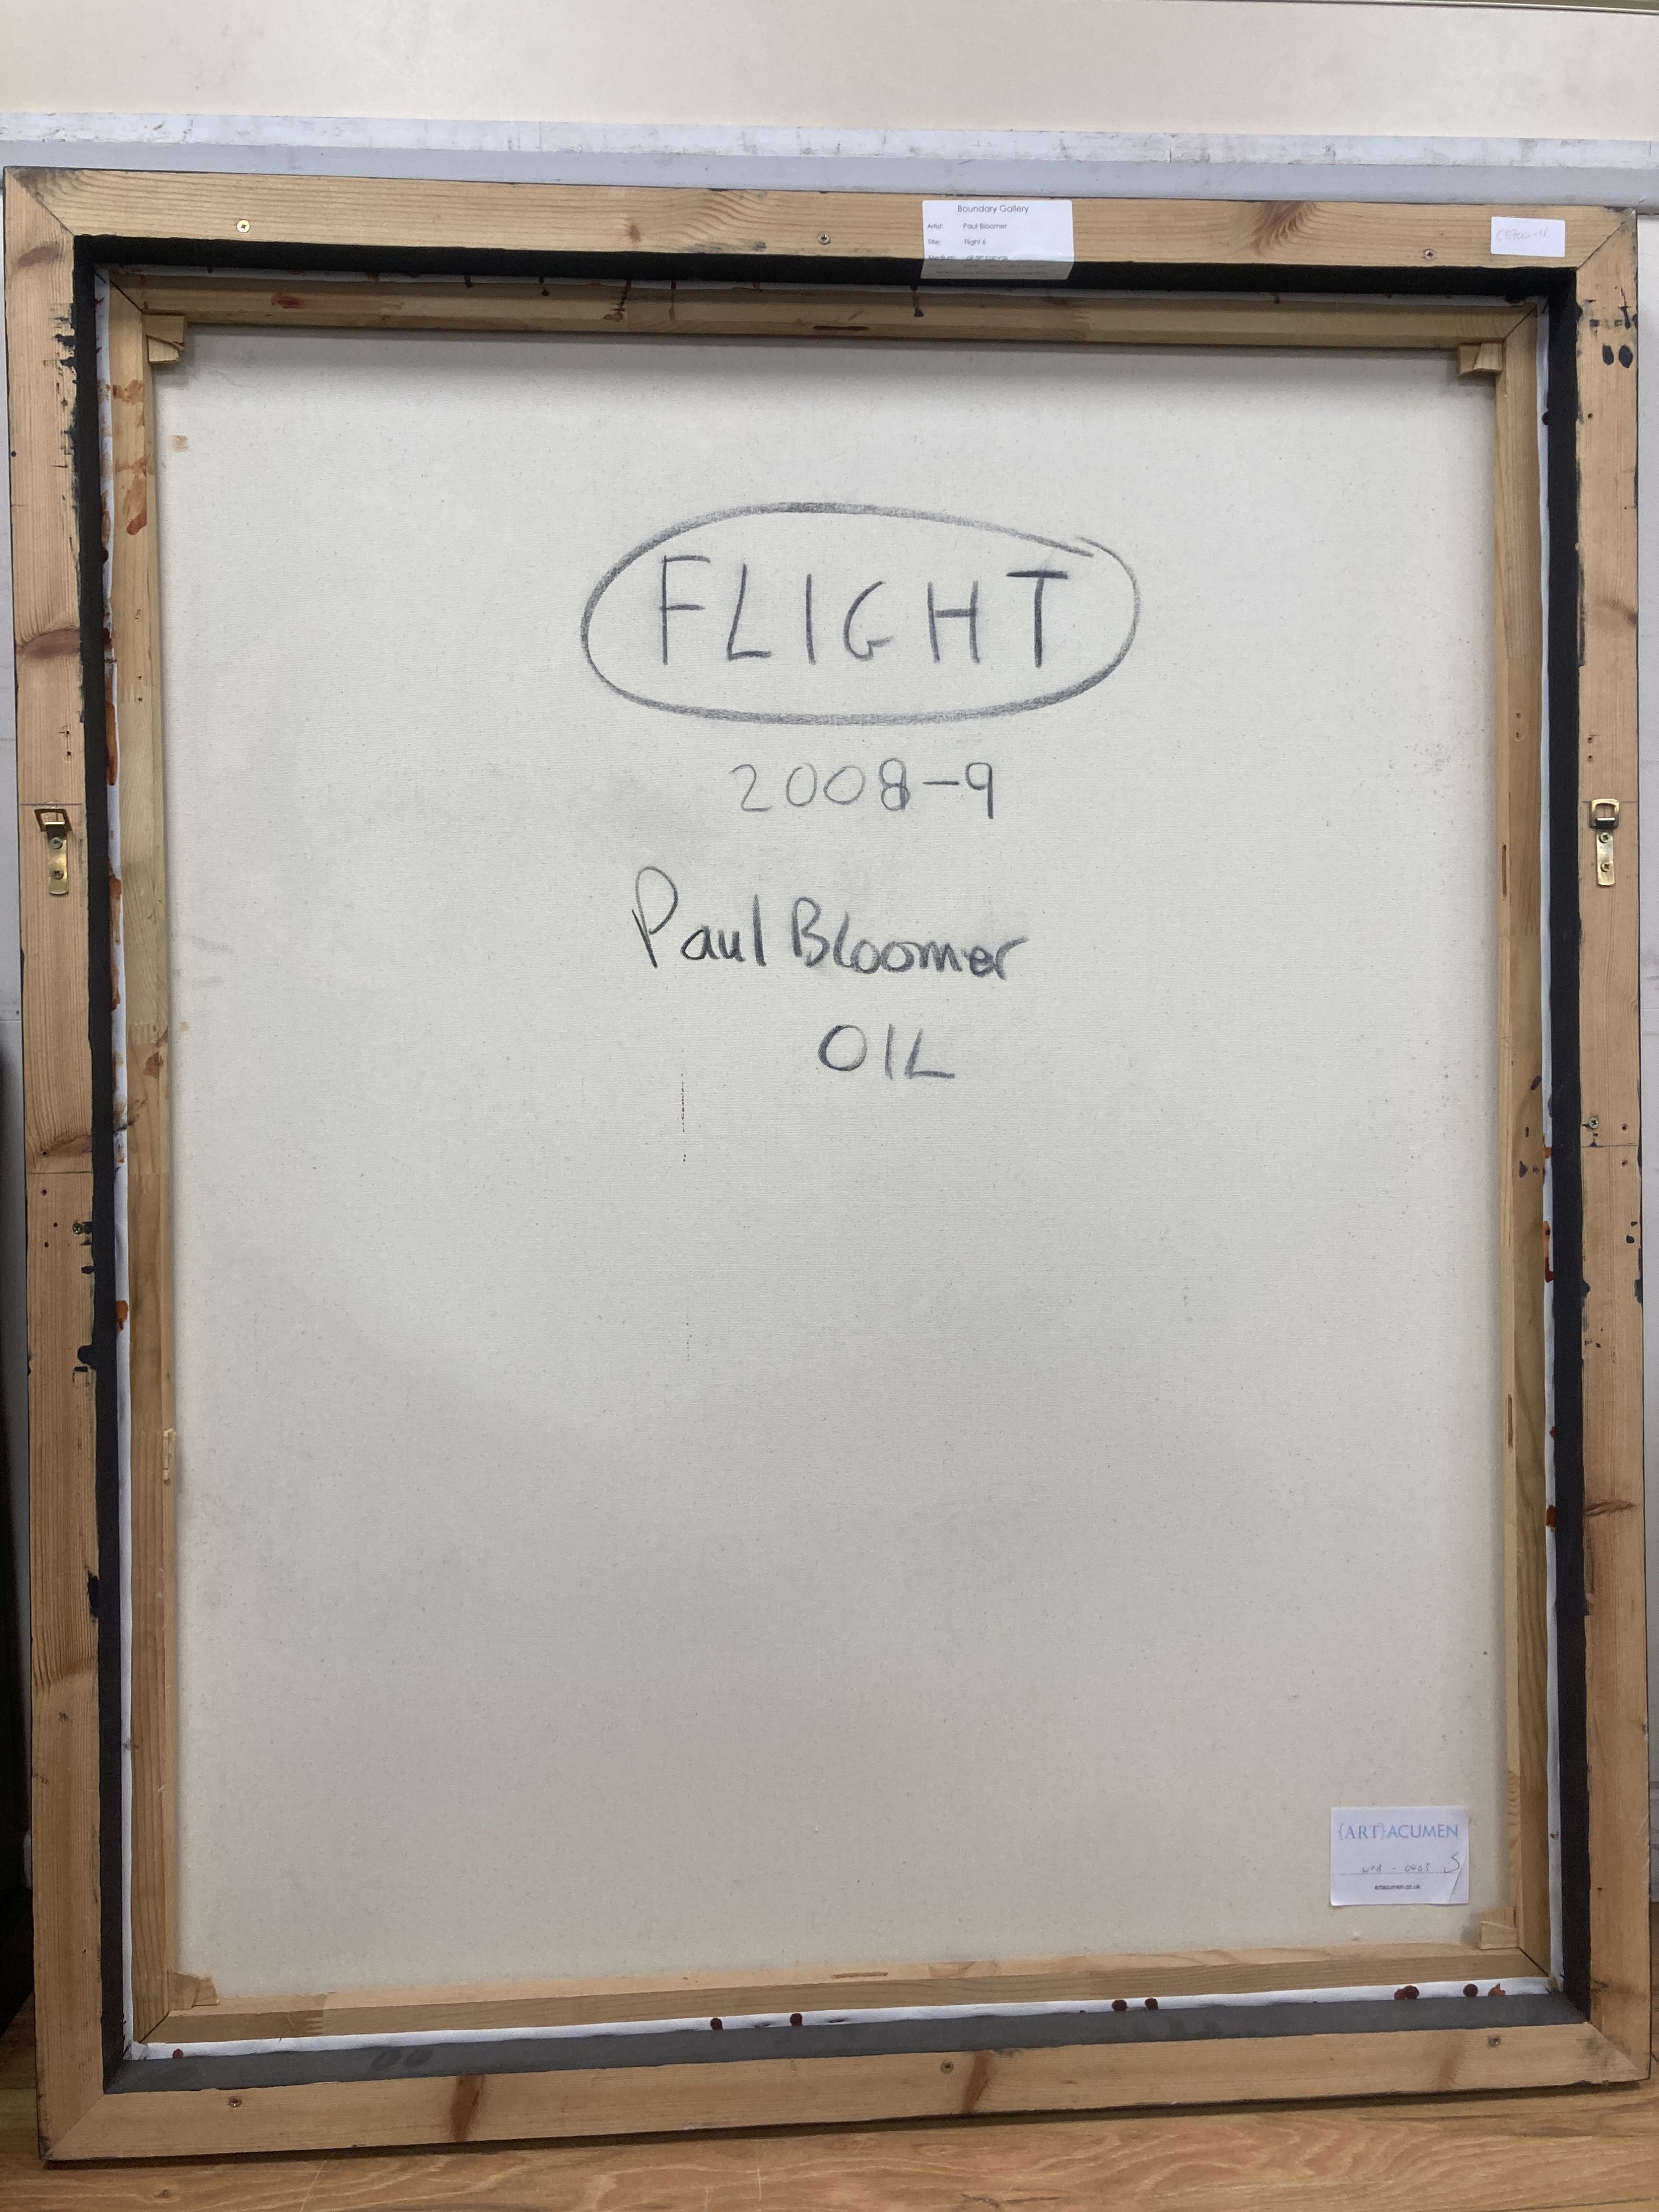 Boundary Gallery
Artist: Paul Bloomer
Title: Flight 6
Medium: oil on canvas
FLIGHT
2008-9
Paul Bloomer
OIL
{ART}ACUMEN
artacumen.co.uk